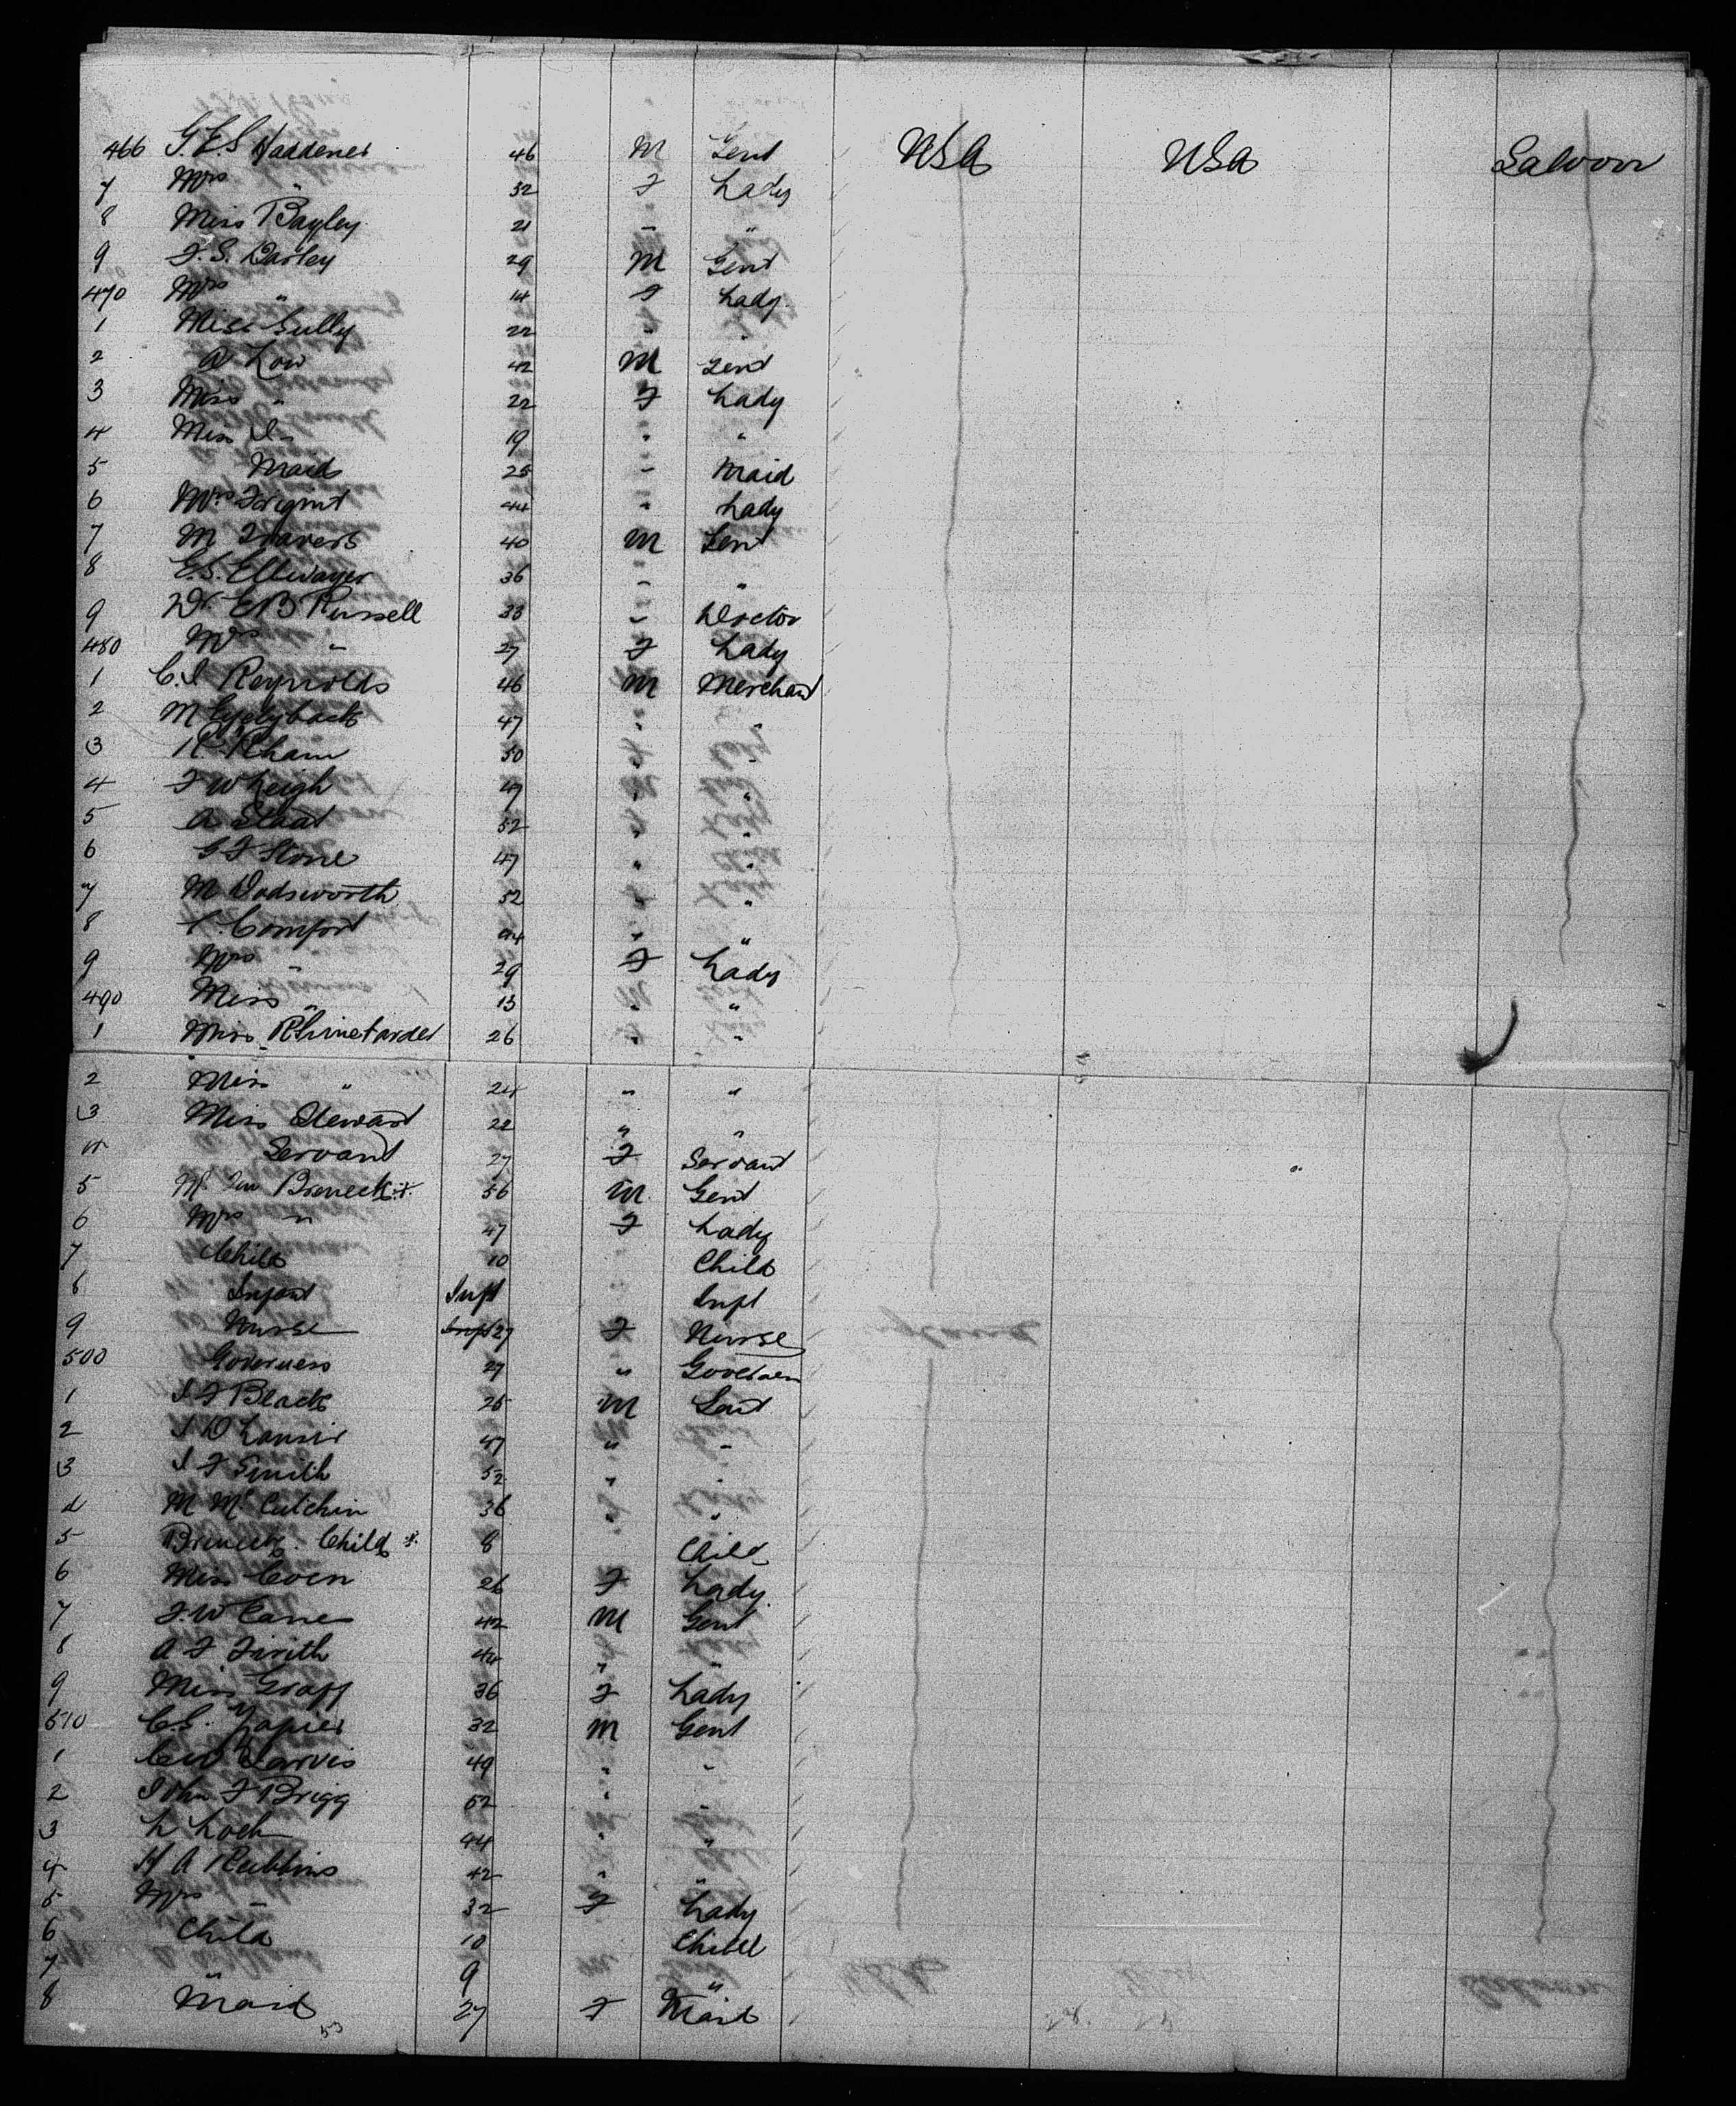 466 G.E.S Waddener 46 M Gent USA USA Saloon
7 Mrs " 32 F Lady
8 Miss Bayley 21 " "
9 F.S. Darley 29 M Gent
470 Mrs " 14 F Lady
1 Miss Gully 22 " "
2 A Low 42 M Gent
3 Miss " 22 F Lady
4 Miss Do 19 " "
5 Maid 25 " Maid
6 Mrs 44 " Lady
7 M Travers 40 M Gent
8 E.S. Ellwayer 36 " "
9 Dr. E B Russell 33 " Doctor
480 Mrs " 27 F Lady
1 C.S Reynolds 46 M Merchant
2 M 47 " "
3 R. Rham 50 " "
4 F W Leigh 49 " "
5 A Staat 52 " "
6 G F Stone 47 " "
7 M Wadsworth 52 " "
8 Comfort 44 " "
9 Mrs " 29 F Lady
490 Miss " 13 " "
1 Miss Rhinelarder 26 " "
2 Miss " 24 " "
3 Miss Stewart 22 " "
4 Servant 27 F Servant
5 M. Breneck 56 M Gent
6 Mrs " 47 F Lady
7 Child 10 Child
8 Infant Inft Inft
9 Nurse 27 F Nurse
500 Governess 27 " Governess
1 J F Black 25 M Gent
2 J D Lansir 47 " "
3 J F Smith 52 " "
4 M McCutchin 36 " "
5 Breneck Child 8 Child
6 Miss Coen 26 F Lady
7 F.W Cane 42 M Gent
8 A F Firith 44 " "
9 Miss Graff 36 F Lady
510 C.S. Napier 32 M Gent
1 C W Jarvis 49 " "
2 John F Brigg 52 " "
3 L Loch 44 " "
4 H A Robbins 42 " "
5 Mrs " 32 F Lady
6 Child 10 Child
7 " 9 "
8 Maid 27 F Maid
53